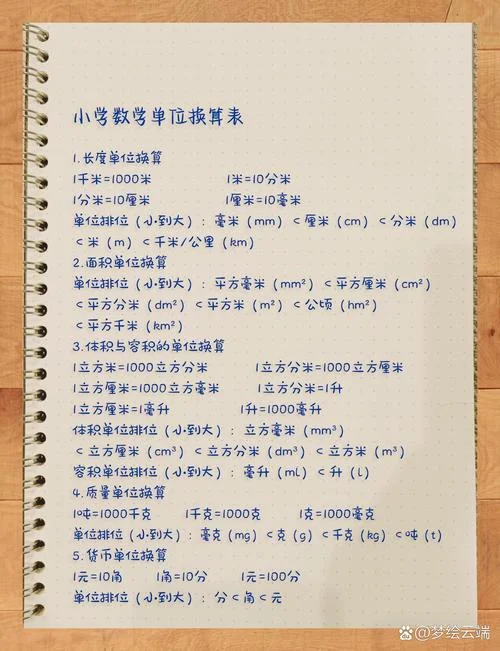 小学数学单位换算表
1.长度单位换算
1千米=1000米 1米=10分米
1分米=10厘米 1厘米=10毫米
单位排位(小到大):毫米(mm)<厘米(cm)<分米(dm)
<米(m)<千米/公里(km)
2.面积单位换算
单位排位(小到大):平方毫米(mm²)<平方厘米(cm²)
<平方分米(dm²)<平方米(m²)<公顷(hm²)
<平方千米(km²)
3.体积与容积的单位换算
1立方米=1000立方分米 1立方分米=1000立方厘米
1立方厘米=1000立方毫米 1立方分米=1升
1立方厘米=1毫升 1升=1000毫升
体积单位排位(小到大):立方毫米(mm³)
<立方厘米(cm³)<立方分米(dm³)<立方米(m³)
容积单位排位(小到大):毫升(ml)<升(l)
4.质量单位换算
1吨=1000千克 1千克=1000克 1克=1000毫克
单位排位(小到大):毫克(mg)<克(g)<千克(kg)<吨(t)
5.货币单位换算
1元=10角 1角=10分 1元=100分
单位排位(小到大):分<角<元
@梦绘云端